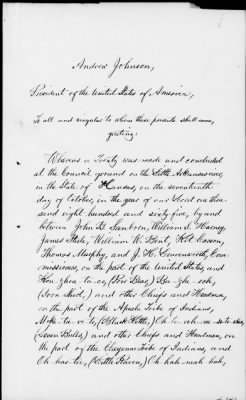 Andrew Johnson,
President of the United States of America,
To all and singular to whom these presents shall come,
greeting:
Whereas a Treaty was made and concluded
at the Council ground on the Little Arkansas river,
in the State of Kansas, on the seventeenth
day of October, in the year of our Lord one thou-
sand eight hundred and sixty-five, by and
between John B. Sanborn, William S. Harney,
James Steele, William W. Bent, Kit Carson,
Thomas Murphy, and J. H. Leavenworth, Com-
missioners, on the part of the United States, and
Kou-zhon-ta-co, (Poor Bear,) Ba-zhe-ech,
(Iron Shirt,) and other Chiefs and Headmen,
on the part of the Apache Tribe of Indians,
Moke-ta-ve-to, (Black Kettle,) Oh-to-ah-ne-so-to-wheo,
(Seven Bulls,) and other Chiefs and Headmen, on
the part of the Cheyenne Tribe of Indians, and
Oh-has-tee, (Little Raven,) Oh-hah-mah-hah,